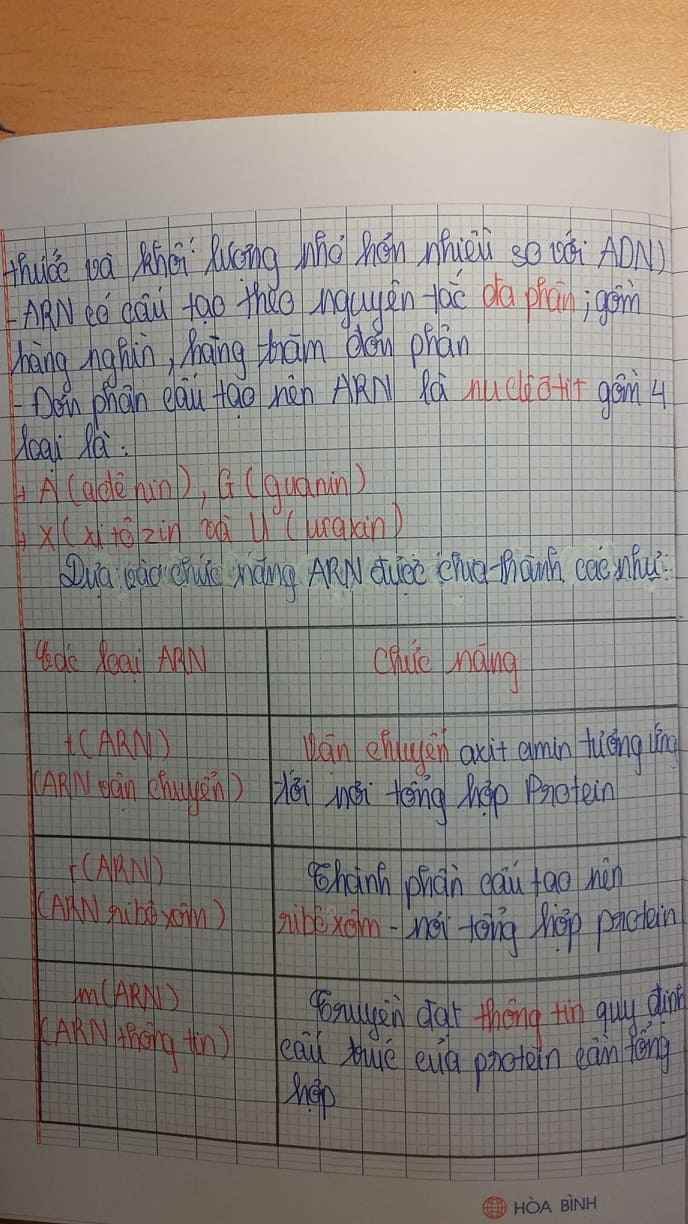 thước và khối lượng nhỏ hơn nhiều so với ADN)
- ARN có cấu tạo theo nguyên tắc đa phân; gồm
hàng nghìn, hàng trăm đơn phân
- Đơn phân cấu tạo nên ARN là nuclêôtit gồm 4
loại là:
+ A (ađênin), G (guanin)
+ X (xitôzin và U (uraxin)
Dựa vào chức năng ARN được chia thành các như:
Các loại ARN
Chức năng
t(ARN)
(ARN vận chuyển)
Vân chuyển axit amin tương ứng
tới nơi tổng hợp Protein
r(ARN)
(ARN ribôxôm)
Thành phần cấu tạo nên
ribôxôm - nơi tổng hợp protein
m(ARN)
(ARN thông tin)
Truyền đạt thông tin quy định
cấu trúc của protein cần tổng
hợp
HÒA BÌNH